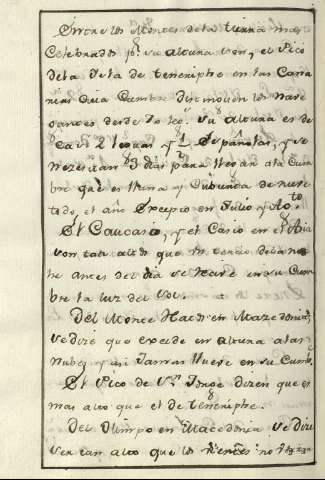 Entre los Montes de la tierra mas
Celebrados pr. su altura son, el Pico
de la Isla de Teneriphe en las Cana
rias cuia Cumbre distinguen los Nave
gantes desde 60 leg. su altura es de
casi 2 leguas y 1/2 Españolas, y se
necesitan 3 dias para llegar a la Cum
bre que es llena y Cubierta de nieve
todo el año Excepto en Julio y Agto.
El Caucaso, y el Casio en el Asia
son tan altos que la tercia de la no
che antes del dia se ve en su Cum
bre la luz del Sol.
Del Monte Hacho en Mazedonia,
se dize que excede en altura a las
Nubes y asi Jamas llueve en su Cumbe.
El Pico de Sn. Jorge dizen que es
mas alto que el de Teneriphe.
Del Olimpo en Macedonia se dize
ser tan alto que los vientos no llegan